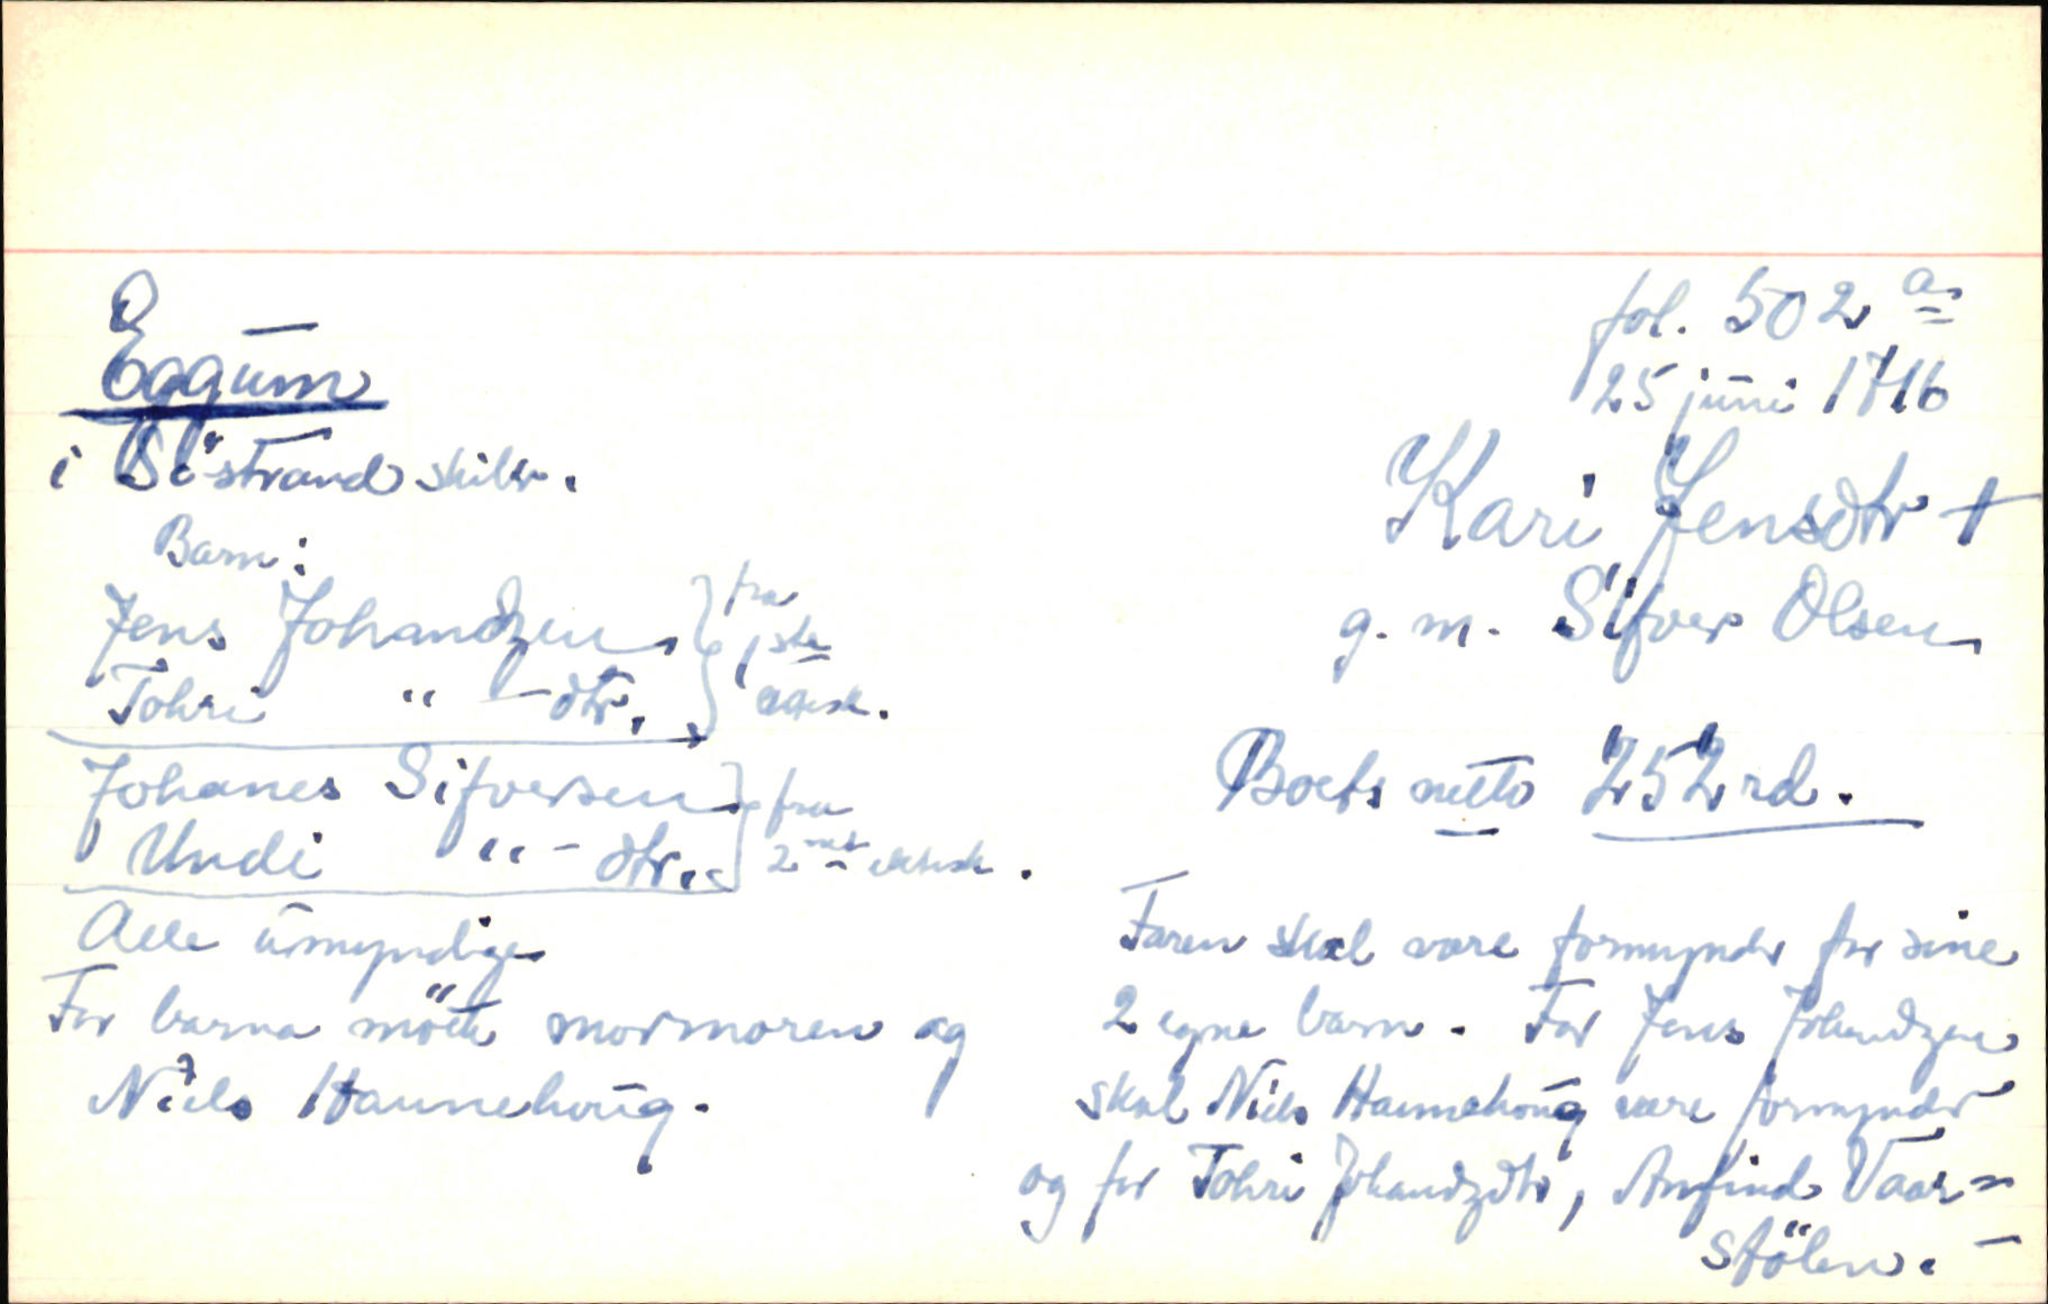 Eggum
i Söstrand skibr.
Barn:
Jens Johandzen
Tohri " - dtr.
fra
1ste
ektesk.
Johanes Sifversen
Undi " - dtr.
fra
2net ektesk.
Alle umyndige
For barna mötte mormoren og
Niels Haunehoug.
fol. 502 a
25 juni 1716
Kari Jensdtr †
g. m. Sifver Olsen
Boets netto 252 rd.
Faren skal være formynder for sine
2 egne barn. For Jens Johandzen
skal Niels Haunehoug være formynder
og for Tohri Johandzdtr, Anfind Vaar-
stölen. -